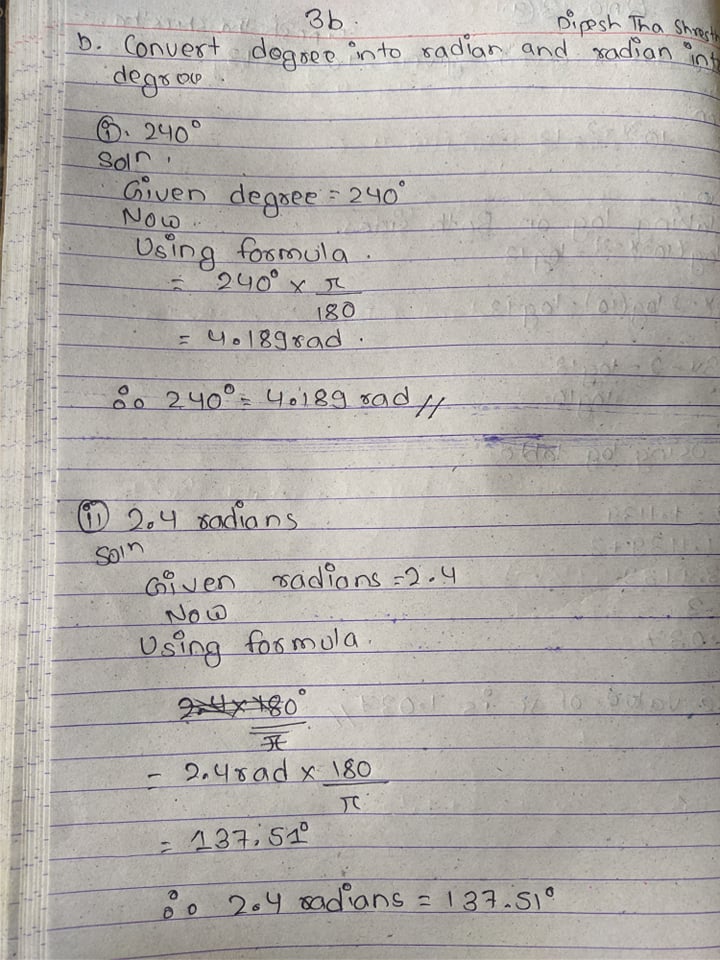 3b.
Dipesh Tha Shresth
b. Convert degree into radian and radian int
degree.
(i). 240°
Soln.
Given degree = 240°
Now
Using formula.
= 240° × π/180
= 4.189 rad.
∴ 240° = 4.189 rad //
(ii) 2.4 radians
Soln
Given radians = 2.4
Now
Using formula.
2.4 × 180°/π
= 2.4 rad × 180/π
= 137.51°
∴ 2.4 radians = 137.51°